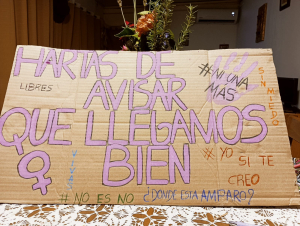 HARTAS DE
AVISAR
QUE LLEGAMOS
BIEN
LIBRES
#NI UNA
MÁS
SIN MIEDO
VIVAS
# YO
SI TE
CREO
#NO ES NO
¿DONDE ESTA AMPARO?